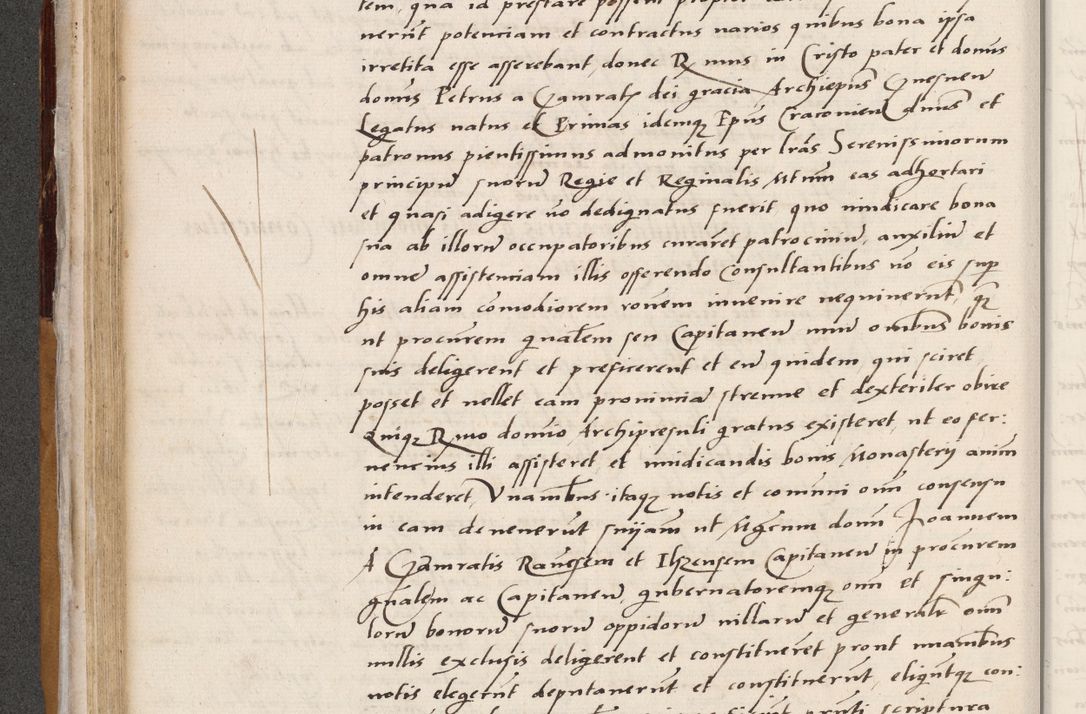 tem, qua id prestare possent propter
uerint potenciam et contractus varios quibus bona ipsa
irretita esse asserebant, donec Rmus in Cristo pater et domūs
domūs Petrus a Gamrath dei gracia Archiepūs Gnesneñ
Legatus natus et Primas idemqꝫ Epūs Cracovieñ dnūs et
patronus pientissimus admonitus per lrās Serenissimorum
principū suorū Regie et Reginalis Mtum eas adhortari
et quasi adigere nō dedignatus fuerit, quo vindicare bona
sua ab illorū occupatoribus curaret patrociniū, auxiliū et
omnē assistenciam illis offerendo Consultantibus nō eis sup
his aliam cōmodiorem rōnem invenire nequiverūt, qꝫ
ut procūrem gnālem seu Capitaneū unū omībus bonis
suis deligerent et preficerent et eū quidem, qui sciret
posset et vellet eam provinciā strenue et dexteriter obire
Quiqꝫ Rmo domino Archipresuli gratus existeret, ut eo fer:
vencius illi assisteret, et vindicandis bonis Monasterij animū
intenderet, Vnāmibus itaqꝫ votis et comuni omī consensu
in eam devenerūt sniam ut Mgcum domī Joannem
A Gamratis Ravēsem et Ilzensem Capitaneū in procūrem
gnālem ac Capitaneū, gubernatoremqꝫ omī et singu:
lorū bonorū suorū oppidorū villarū et generalr omī
nullis exclusis deligerent et constituerent prout unāmibus
votis elegerūt deputaverūt et constituerūt, eligūtqꝫ con:
scriptura